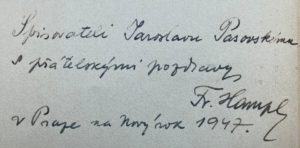 Spisovateli Jaroslavu Pasovskému
s přátelskými pozdravy
Fr. Hampl
v Praze na Nový rok 1947.